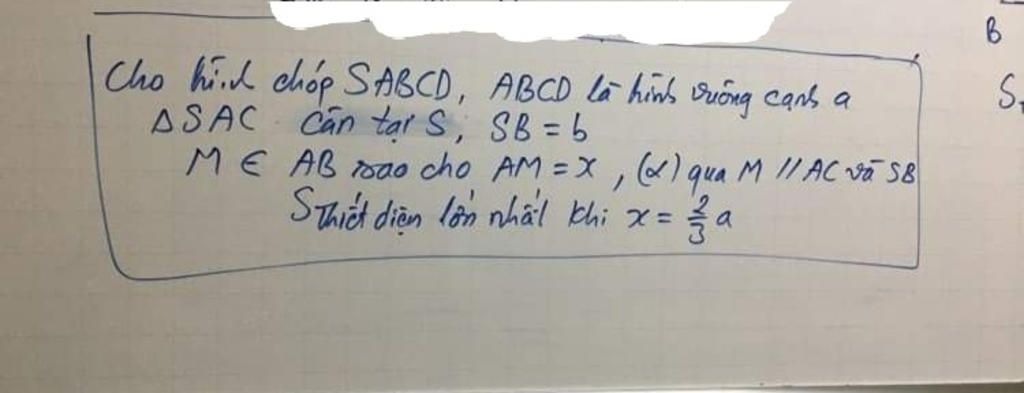 B
Cho hình chóp SABCD, ABCD là hình vuông cạnh a
S
ΔSAC cân tại S, SB = b
M ∈ AB sao cho AM = x, (α) qua M // AC và SB
S thiết diện lớn nhất khi x = 2/3 a